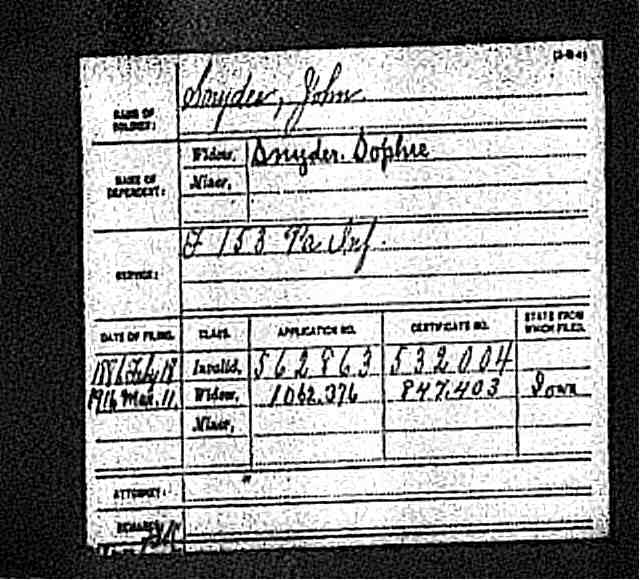 (3-B-4)
NAME OF SOLDIER: Snyder, John
NAME OF DEPENDENT: Widow, Snyder. Sophie
Minor,
SERVICE: F 153 Pa. Inf.
DATE OF FILING. CLASS. APPLICATION NO. CERTIFICATE NO. STATE FROM WHICH FILED.
1886 Feb 18 Invalid, 562863 532004
1916 Mar. 11. Widow, 1062.376 847.403 Iowa
Minor,
ATTORNEY:
REMARKS: